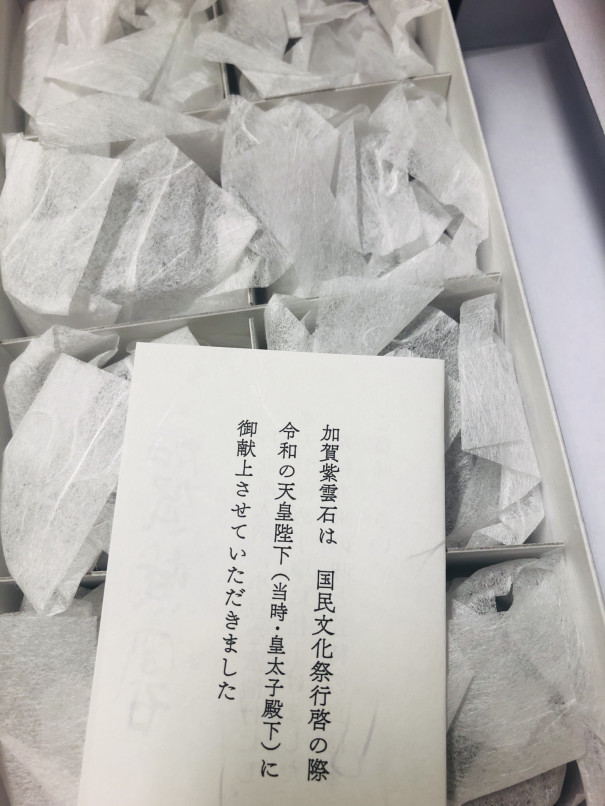 加賀紫雲石は　国民文化祭行啓の際
令和の天皇陛下（当時・皇太子殿下）に
御献上させていただきました